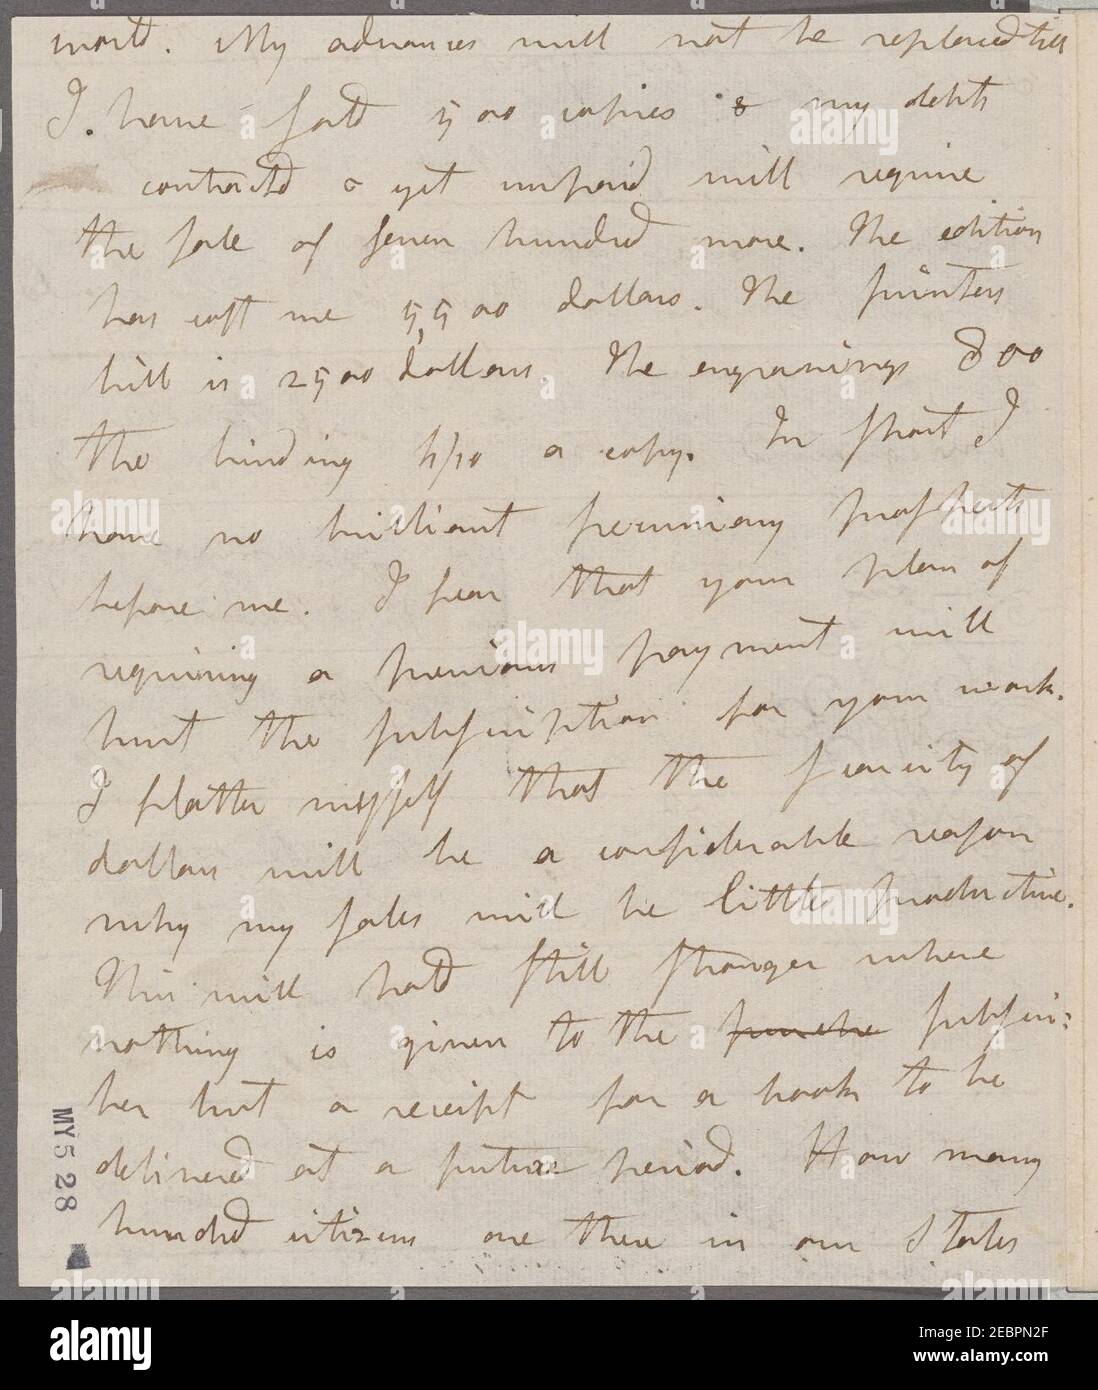 world. My advances will not be replaced till
I have sold 500 copies & my debts
contracted & yet unpaid will require
the sale of seven hundred more. The edition
has cost me 5,500 dollars. The printers
bill is 2500 dollars. The engravings 800
the binding a copy. In short I
have no brilliant pecuniary prospects
before me. I fear that your plan of
requiring a previous payment will
hurt the subscription for your work.
I flatter myself that the scarcity of
dollars will be a considerable reason
why my sales will be little productive.
This will hold still stronger where
nothing is given to the subscri:
ber but a receipt for a book to be
delivered at a future period. How many
hundred citizens are there in our States
MY 5 28
alamy
Image ID: 2EBPN2F
www.alamy.com